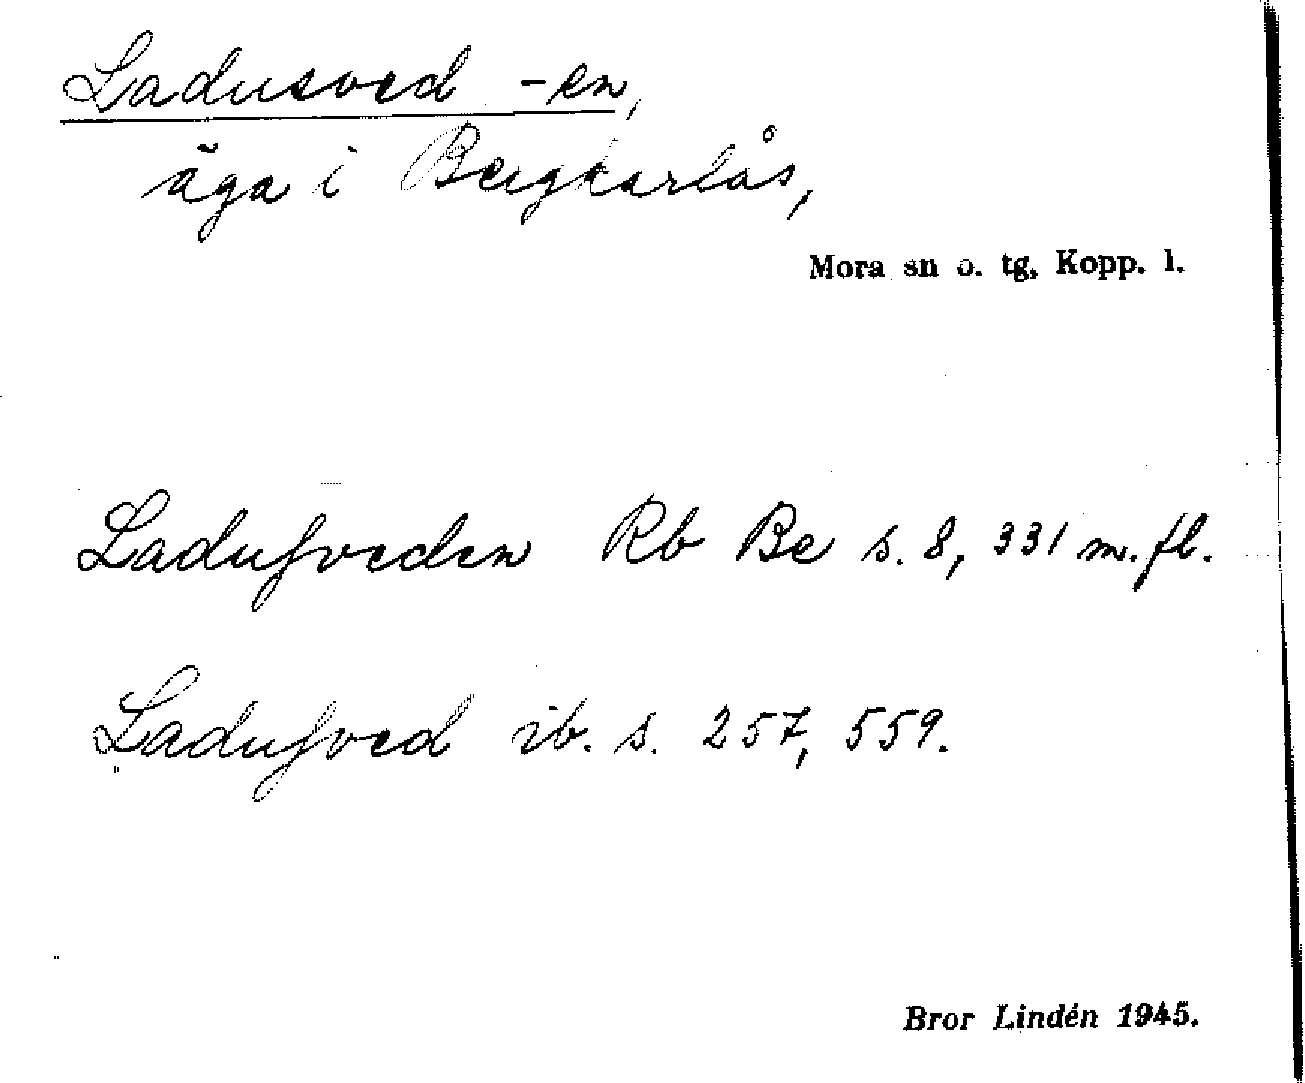 Ladusved -en,
äga i Bergkarlås,
Mora sn o. tg, Kopp. l.
Laduſveden Rb Be s. 8, 331 m. fl.
Laduſved ib. s. 257, 559.
Bror Lindén 1945.